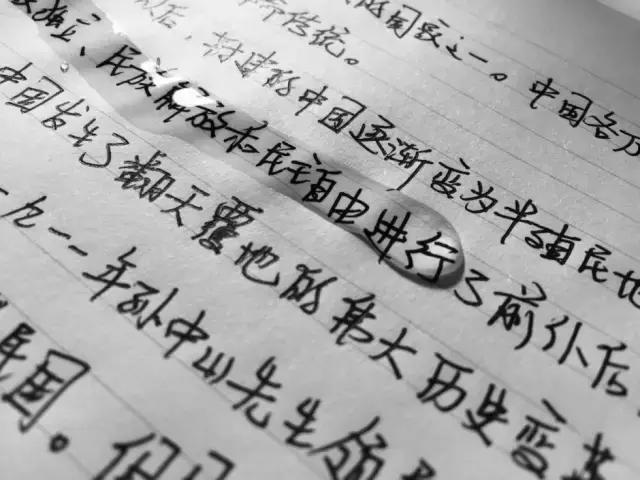 的国家之一。中国各
传统。
以后，封建的中国逐渐变为半殖民地
独立、民族解放和民主自由进行了前仆后
中国发生了翻天覆地的伟大历史变革
一九一一年孙中山先生领
民国。但